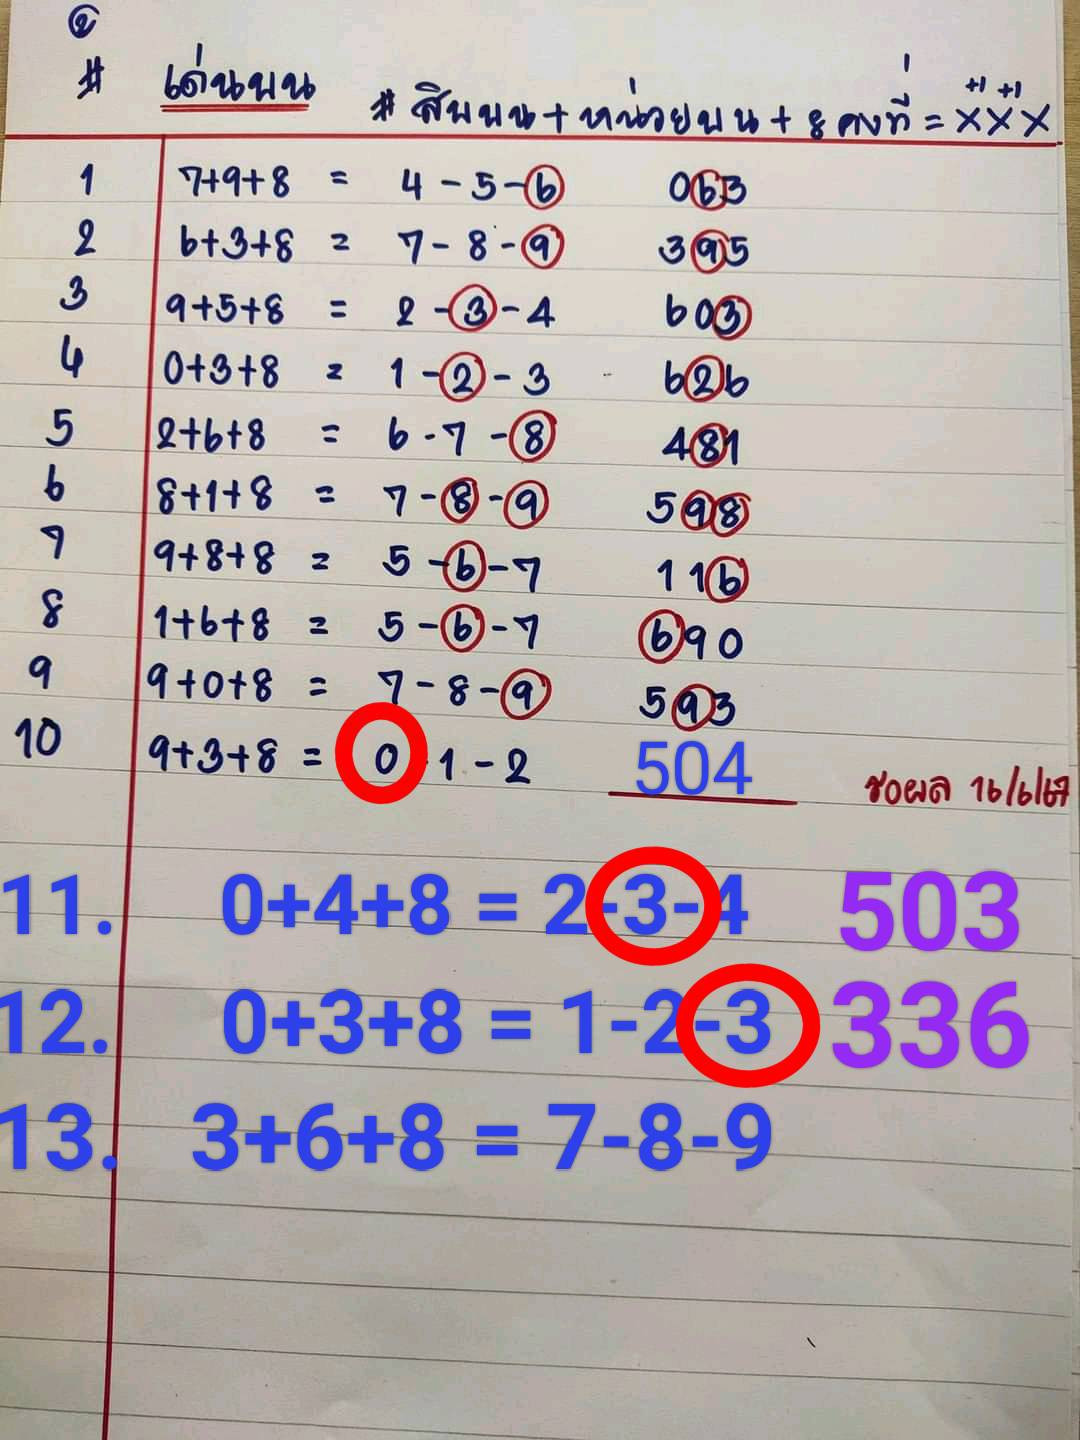 ๒
# เด่นบน # สิบบน + หน่วยบน + 8 คงที่ = XXX
+1 +1
1 7+9+8 = 4-5-6 063
2 6+3+8 = 7-8-9 395
3 9+5+8 = 2-3-4 603
4 0+3+8 = 1-2-3 626
5 2+6+8 = 6-7-8 481
6 8+1+8 = 7-8-9 598
7 9+8+8 = 5-6-7 116
8 1+6+8 = 5-6-7 690
9 9+0+8 = 7-8-9 593
10 9+3+8 = 0 1-2 504 รอผล 16/6/67
11. 0+4+8 = 2-3-4 503
12. 0+3+8 = 1-2-3 336
13. 3+6+8 = 7-8-9